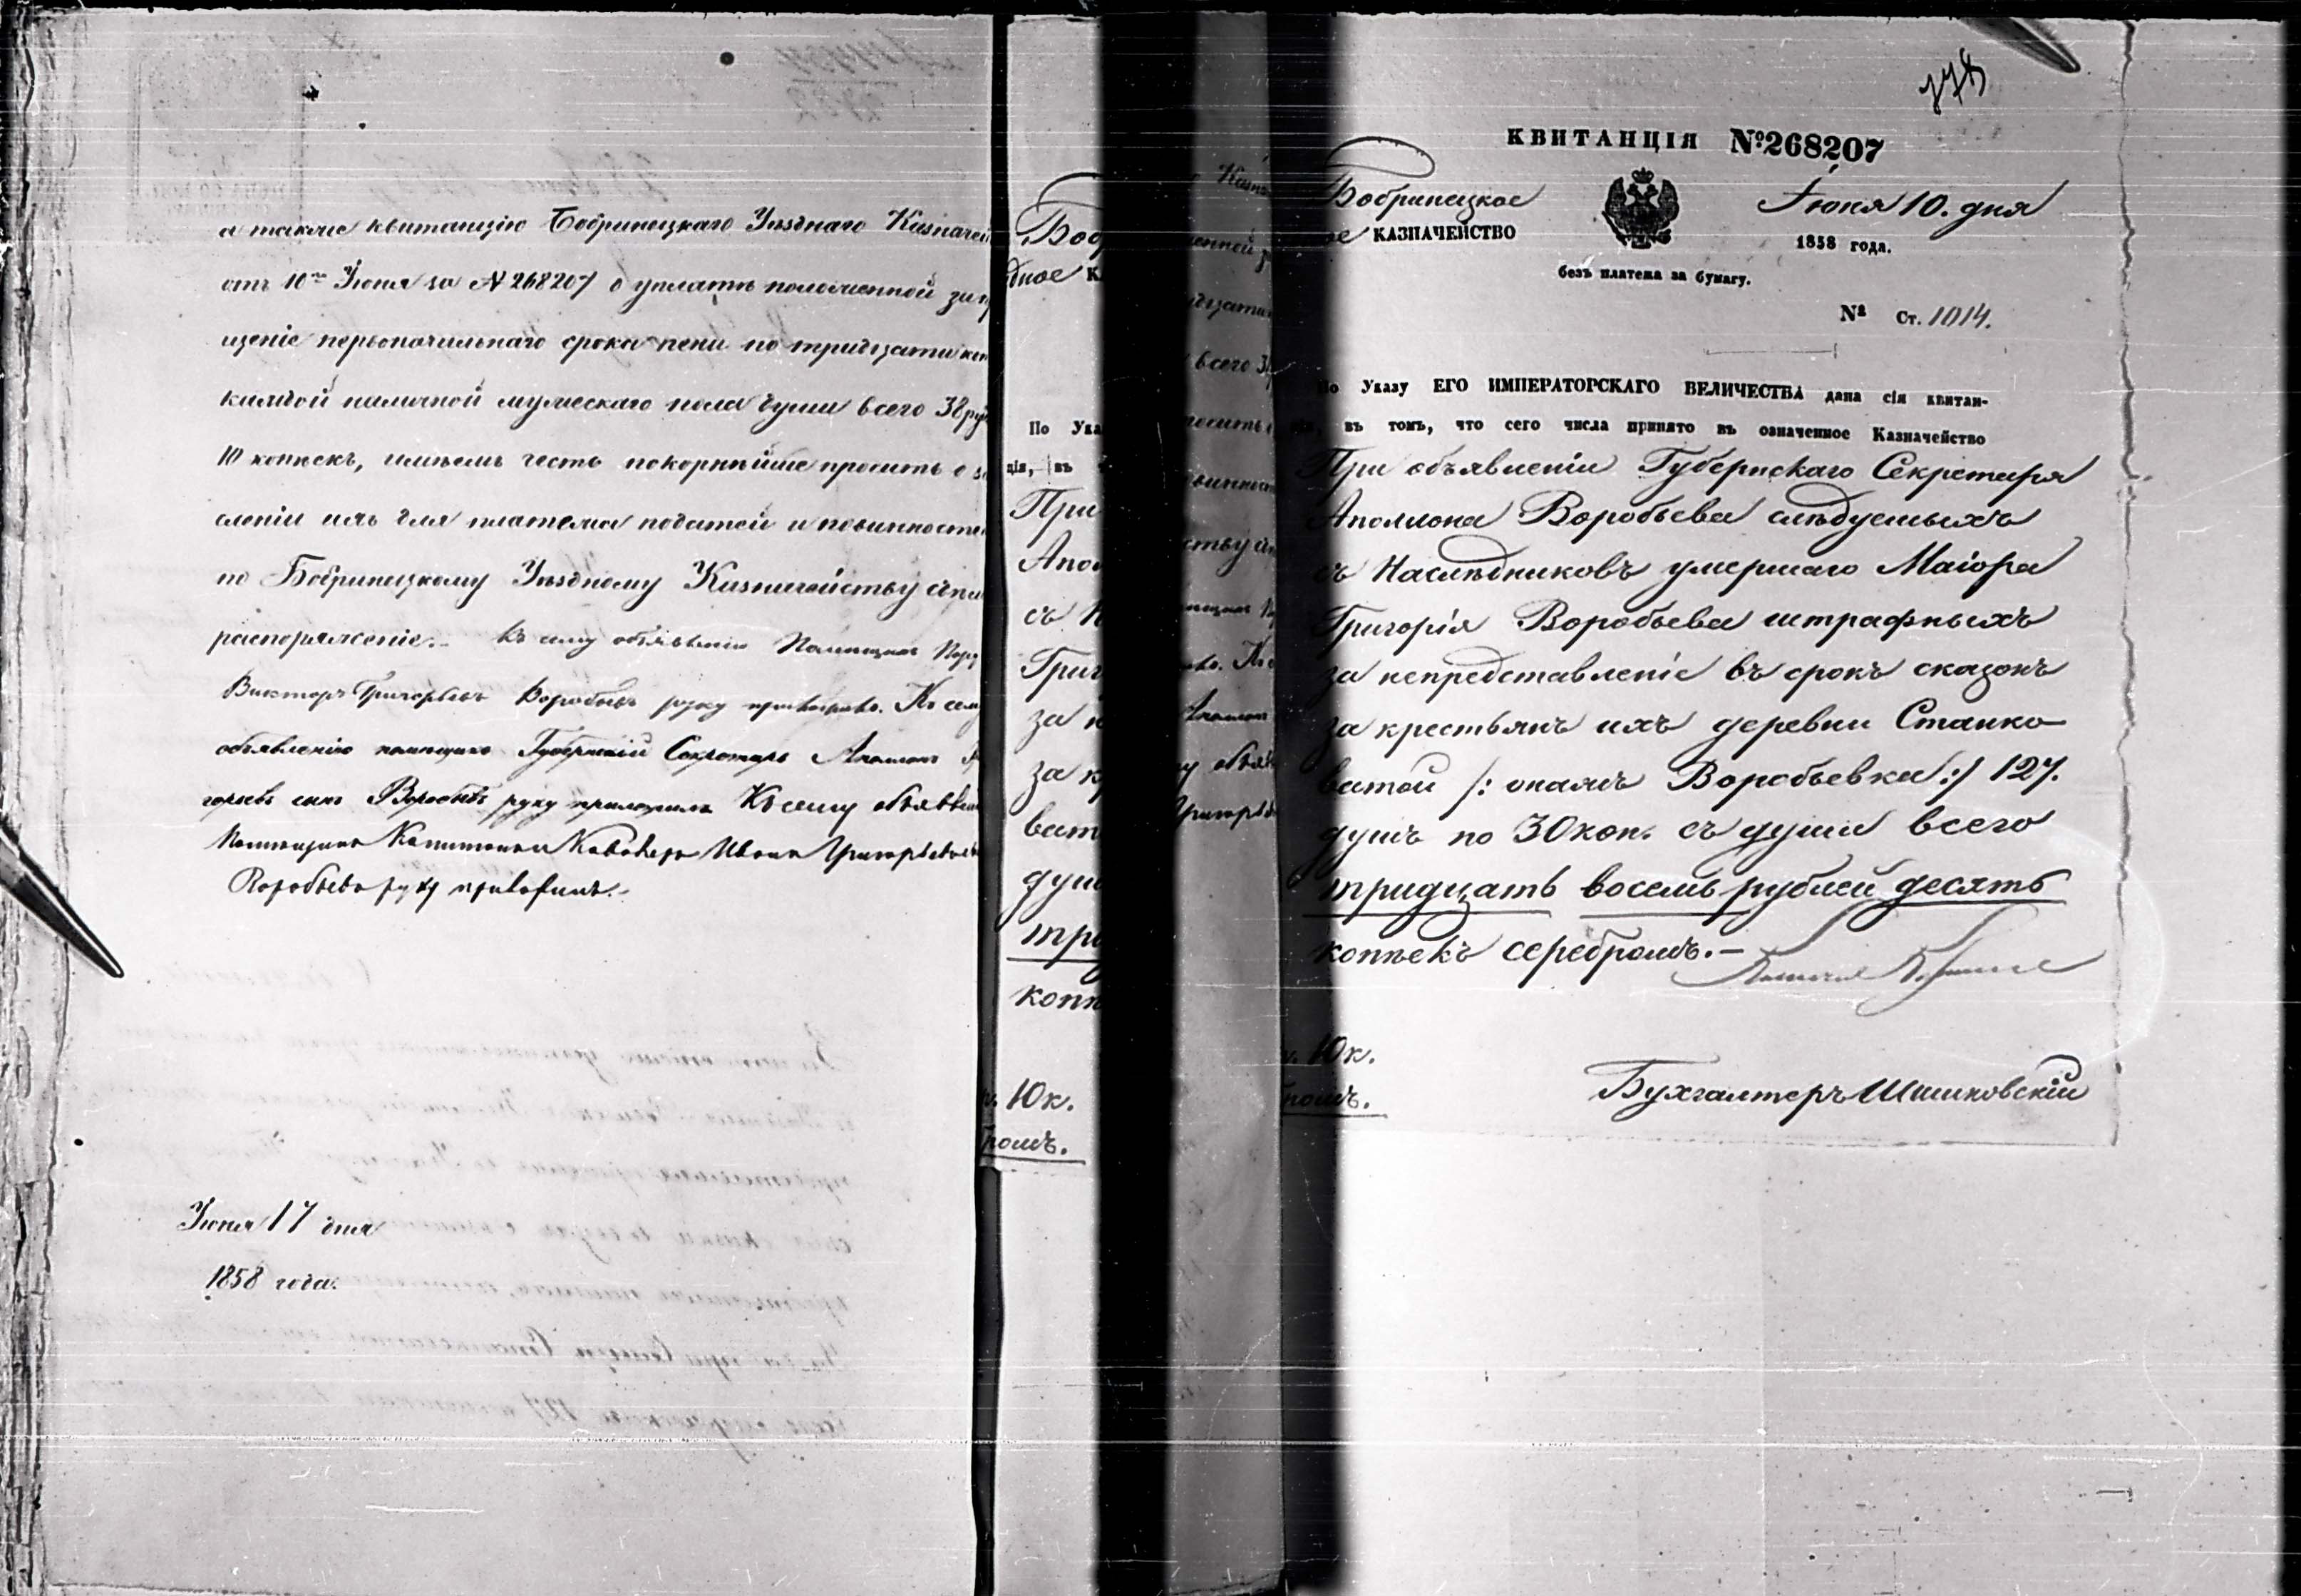 а также квитанцію Бобринецкаго Уѣзднаго Казначей
отъ 10го Іюня за № 268207 о уплатѣ положенной за пр
щеніе первоначальнаго срока пени по тридцати коп
каждой наличной мужескаго пола души всего 38 руб
10 копѣекъ, имѣемъ честь покорнѣйше просить о за
сленіи ихъ для платежа податей и повинностей
по Бобринецкому Уѣздному Казначейству
распоряженіе. Къ сему объявленію Помѣщикъ
Викторъ Григорьевъ Воробьевъ руку приложилъ. Къ сему
объявленію помѣщикъ Губернскій Секретарь Аполонъ
горьевъ сынъ Воробьевъ руку приложилъ Къ сему объявлен
Помѣщикъ Иванъ Григорьевъ
Воробьевъ руку приложилъ.
Іюня 17 дня
1858 года.
178
КВИТАНЦІЯ №268207
Бобринецкое
КАЗНАЧЕЙСТВО
Іюня 10. дня
1858 года.
безъ платежа за бумагу.
№ Ст. 1014.
По Указу ЕГО ИМПЕРАТОРСКАГО ВЕЛИЧЕСТВА дана сія квитан-
ція, въ томъ, что сего числа принято въ означенное Казначейство
При объявленіи Губернскаго Секретаря
Аполлона Воробьева слѣдуемыхъ
съ Наслѣдниковъ умершаго Маіора
Григорія Воробьева штрафныхъ
за непредставленіе въ срокъ сказокъ
за крестьянъ ихъ деревни Станко
ватой /: онажъ Воробьевка :/ 127.
душъ по 30 коп. съ души всего
тридцать восемь рублей десять
копѣекъ серебромъ.-
10 к.
ромъ.
Бухгалтеръ Шишковскій